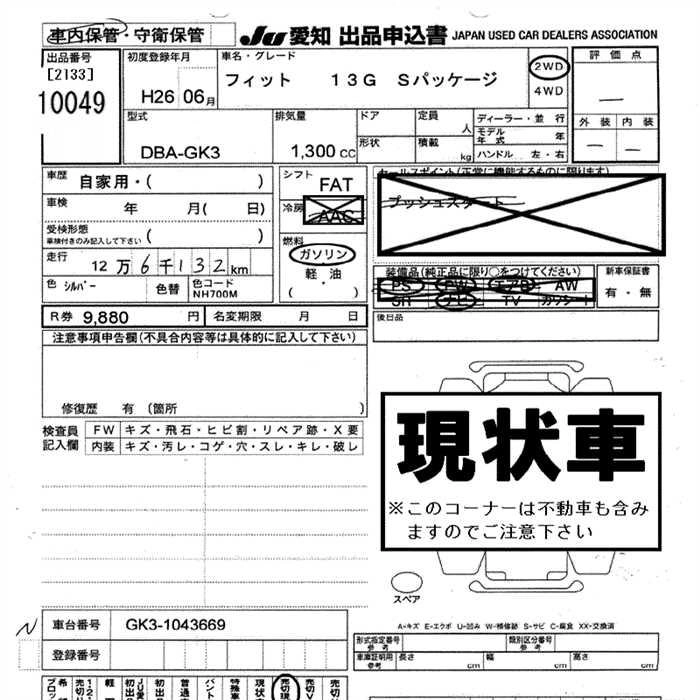 車内保管・守衛保管
JU 愛知 出品申込書 JAPAN USED CAR DEALERS ASSOCIATION
出品番号
[2133]
10049
初度登録年月
H26 06月
車名・グレード
フィット 13G Sパッケージ
2WD
4WD
評価点
外装 内装
型式
DBA-GK3
排気量
1,300 CC
ドア
形状
定員
人
積載
kg
ディーラー・並行
モデル年式 年
ハンドル 左・右
車歴 自家用・( )
車検 年 月( 日)
受検形態
車検付きのみ記入して下さい ( )
走行 12万6千132km
色 シルバー 色替 色コード NH700M
シフト FAT
冷房 AAC
燃料
ガソリン
軽・油
( ・ )
セールスポイント(正常に機能するものに限ります)
プッシュスタート
装備品(純正品に限り○をつけてください)
PS PW エアB AW
SR ナビ TV カワシート
新車保証書
有・無
後日品
R券 9,880 円 名変期限 月 日
注意事項申告欄(不具合内容等は具体的に記入して下さい)
修復歴 有 (箇所 )
検査員記入欄
FW キズ・飛石・ヒビ割・リペア跡・X要
内装 キズ・汚レ・コゲ・穴・スレ・キレ・破レ
現状車
※このコーナーは不動車も含み
ますのでご注意下さい
スペア
A-キズ E-エクボ U-凹み W-補修跡 S-サビ C-腐食 XX-交換済
N
車台番号 GK3-1043669
登録番号
形式指定番号
参考
類別区分番号
参考
車庫証明用
参考
長さ cm 幅 cm 高さ cm